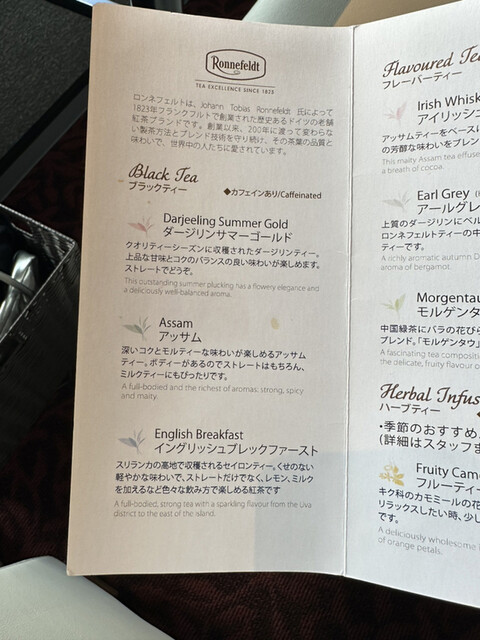 Ronnefeldt
TEA EXCELLENCE SINCE 1823
ロンネフェルトは、Johann Tobias Ronnefeldt 氏によって
1823年フランクフルトで創業された歴史あるドイツの老舗
紅茶ブランドです。創業以来、200年に渡って変わらな
い製茶方法とブレンド技術を守り続け、その茶葉の品質と
味わいで、世界中の人たちに愛されています。
Black Tea
ブラックティー
◆カフェインあり/Caffeinated
Darjeeling Summer Gold
ダージリンサマーゴールド
クオリティーシーズンに収穫されたダージリンティー。
上品な甘味とコクのバランスの良い味わいが楽しめます。
ストレートでどうぞ。
This outstanding summer plucking has a flowery elegance and
a deliciously well-balanced aroma.
Assam
アッサム
深いコクとモルティーな味わいが楽しめるアッサム
ティー。ボディーがあるのでストレートはもちろん、
ミルクティーにもぴったりです。
A full-bodied and the richest of aromas: strong, spicy
and malty.
English Breakfast
イングリッシュブレックファースト
スリランカの高地で収穫されるセイロンティー。くせのない
軽やかな味わいで、ストレートだけでなく、レモン、ミルク
を加えるなど色々な飲み方で楽しめる紅茶です
A full-bodied, strong tea with a sparkling flavour from the Uva
district to the east of the island.
Flavoured Tea
フレーバーティー
Irish Whisk
アイリッシュ
アッサムティーをベースに
の芳醇な味わいをブレン
This malty Assam tea effuse
a breath of cocoa.
Earl Grey
アールグレ
上質のダージリンにベル
ロンネフェルトティーの中
ティーです。
A richly aromatic autumn D
aroma of bergamot.
Morgentau
モルゲンタウ
中国緑茶にバラの花びら
ブレンド。「モルゲンタウ」
A fascinating tea composit
the delicate, fruity flavour o
Herbal Infus
ハーブティー
•季節のおすすめ
(詳細はスタッフま
Fruity Camo
フルーティー
キク科のカモミールの花
リラックスしたい時、少し
です。
A deliciously wholesome
of orange petals.